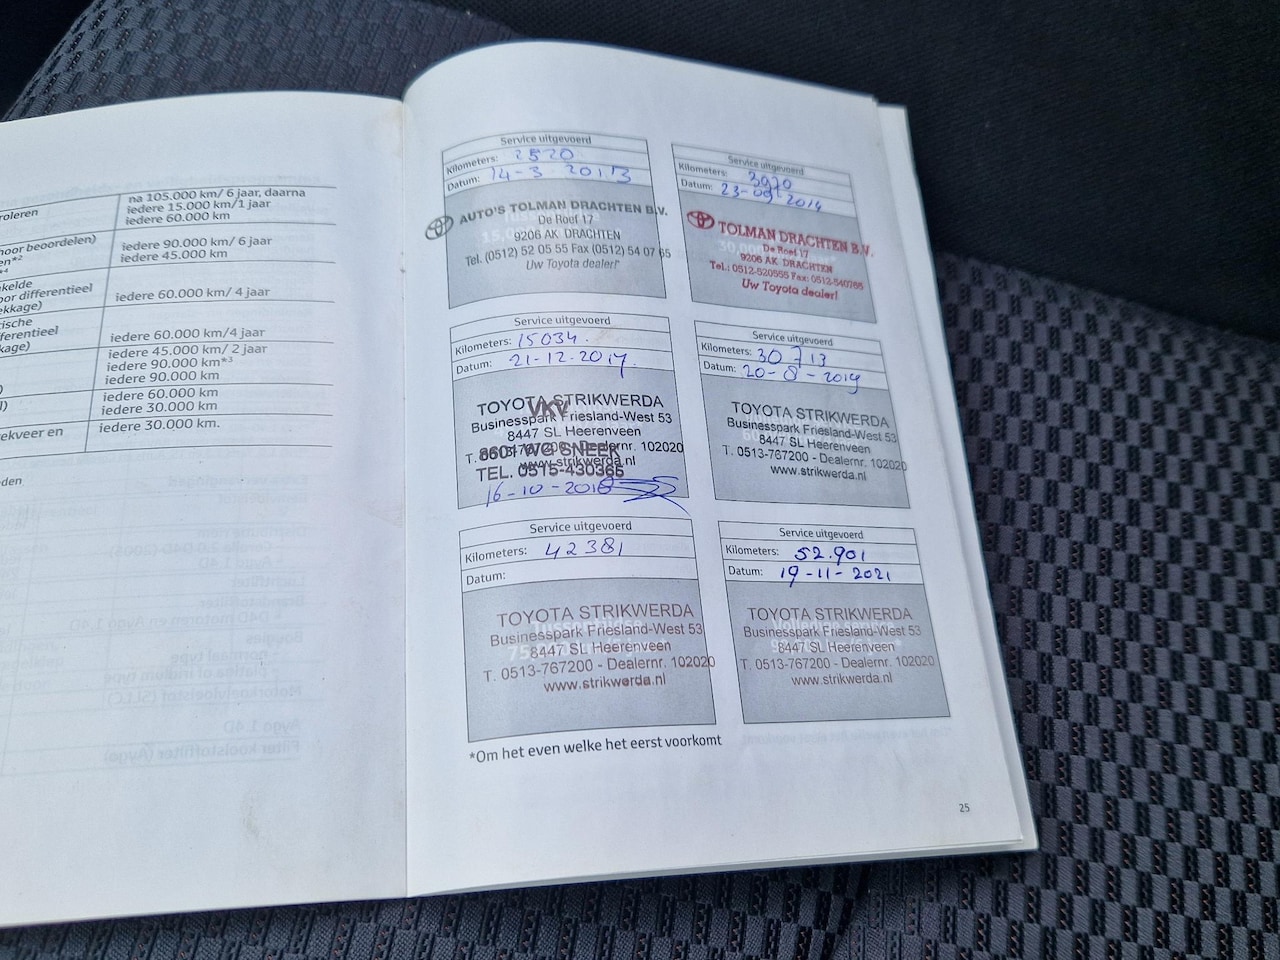 roleren
na 105.000 km/ 6 jaar, daarna
iedere 15.000 km/1 jaar
iedere 60.000 km
noor beoordelen)
en*2
*4
iedere 90.000 km/ 6 jaar
iedere 45.000 km
ekelde
oor differentieel
ekkage)
iedere 60.000 km/ 4 jaar
tische
fferentieel
kage)
iedere 60.000 km/4 jaar
iedere 45.000 km/ 2 jaar
iedere 90.000 km*3
iedere 90.000 km
iedere 60.000 km
iedere 30.000 km
ekveer en
iedere 30.000 km.
eden
Service uitgevoerd
Kilometers: 2520
Datum: 14-3 2013
AUTO'S TOLMAN DRACHTEN B.V.
De Roef 17
9206 AK DRACHTEN
Tel. (0512) 52 05 55 Fax (0512) 54 07 65
Uw Toyota dealer!
Service uitgevoerd
Kilometers: 3970
Datum: 23-09-2014
TOLMAN DRACHTEN B.V.
De Roef 17
9206 AK DRACHTEN
Tel.: 0512-520555 Fax: 0512-540765
Uw Toyota dealer!
Service uitgevoerd
Kilometers: 15034.
Datum: 21-12-2017.
TOYOTA STRIKWERDA
VKV
Businesspark Friesland-West 53
8447 SL Heerenveen
T. 0513-767200 - Dealernr. 102020
8601 WG SNEEK
www.strikwerda.nl
TEL. 0515-430365
16-10-2018
Service uitgevoerd
Kilometers: 30713
Datum: 20-8-2019
TOYOTA STRIKWERDA
Businesspark Friesland-West 53
8447 SL Heerenveen
T. 0513-767200 - Dealernr. 102020
www.strikwerda.nl
Service uitgevoerd
Kilometers: 42381
Datum:
TOYOTA STRIKWERDA
Businesspark Friesland-West 53
8447 SL Heerenveen
T. 0513-767200 - Dealernr. 102020
www.strikwerda.nl
Service uitgevoerd
Kilometers: 52.901
Datum: 19-11-2021
TOYOTA STRIKWERDA
Businesspark Friesland-West 53
8447 SL Heerenveen
T. 0513-767200 - Dealernr. 102020
www.strikwerda.nl
*Om het even welke het eerst voorkomt
25